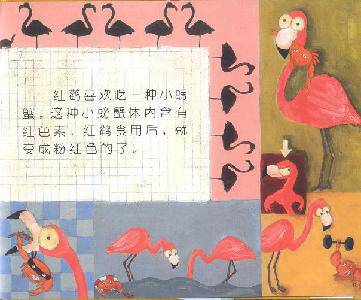 红鹤喜欢吃一种小螃
蟹，这种小螃蟹体内含有
红色素，红鹤食用后，就
变成粉红色的了。